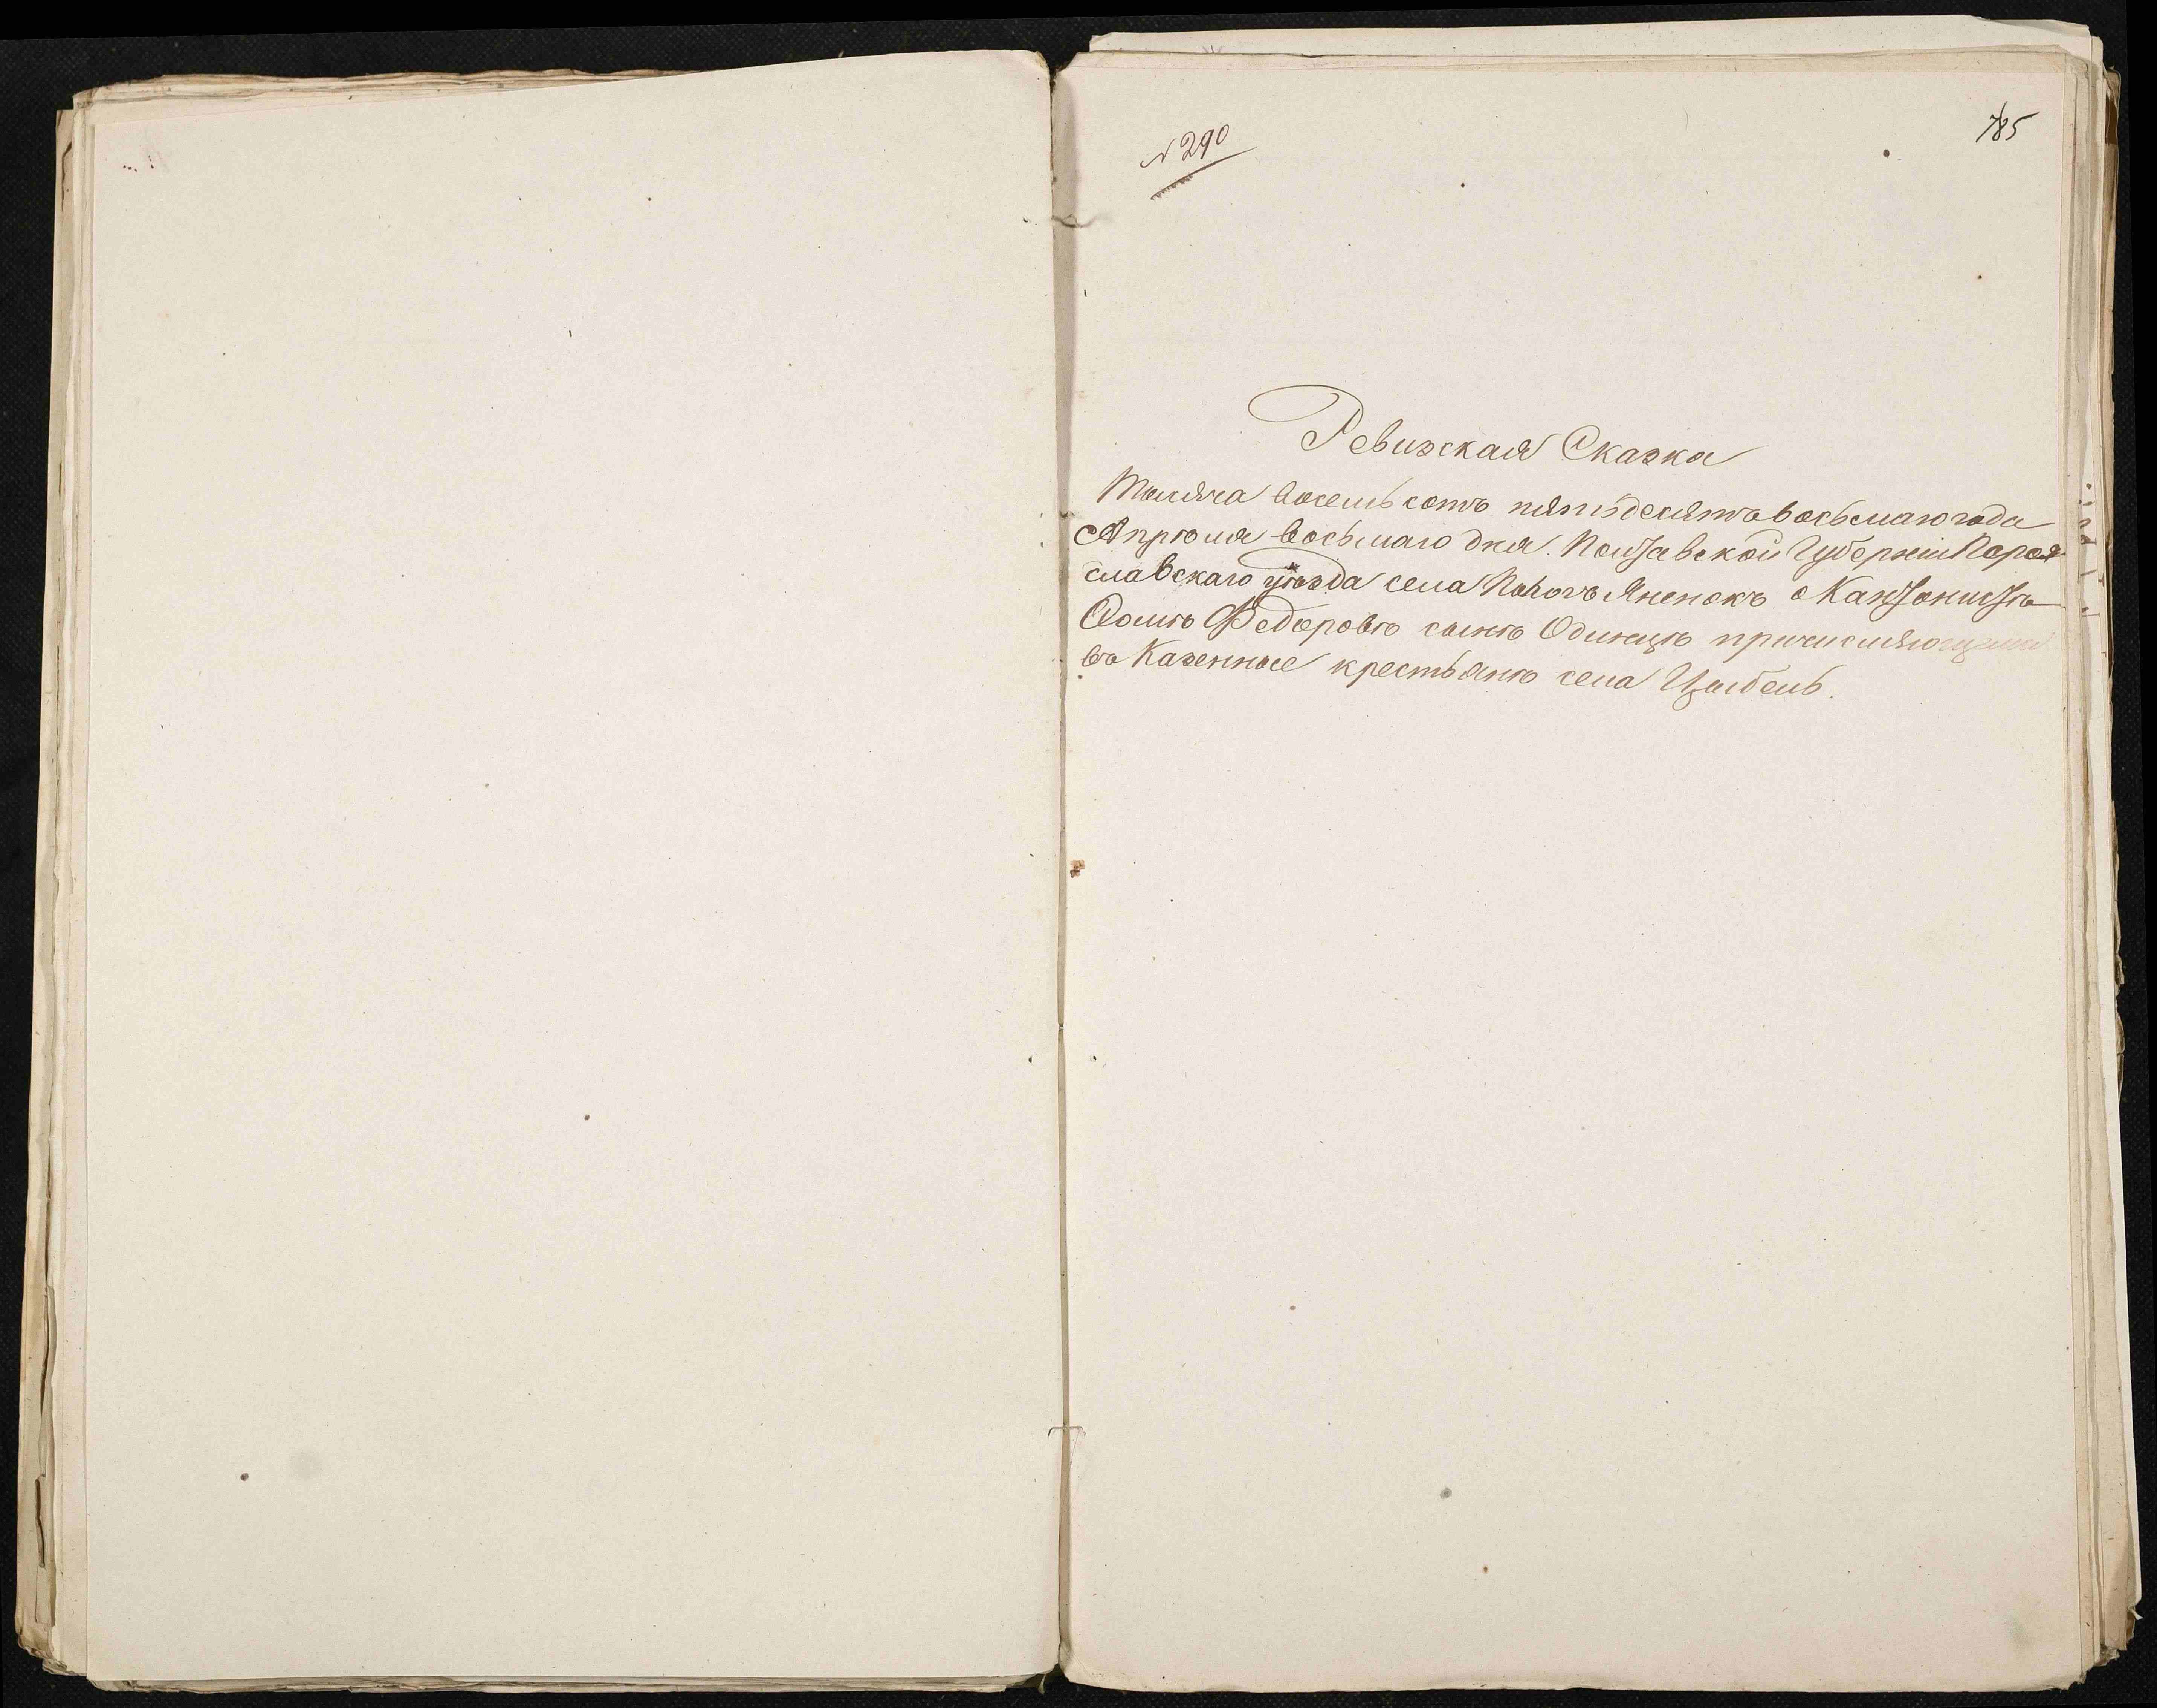 № 290
785
Ревизская Сказка
Тысяча восемь сотъ пятьдесятъ восьмаго года
Апрѣля восьмаго дня. Полтавской Губерніи Перея-
славскаго уѣзда села Яненокъ о Кантонистѣ
Ѳомѣ Федоровѣ сынѣ Одинцѣ причисляющемся
въ Казенные крестьяне села Цыбель.